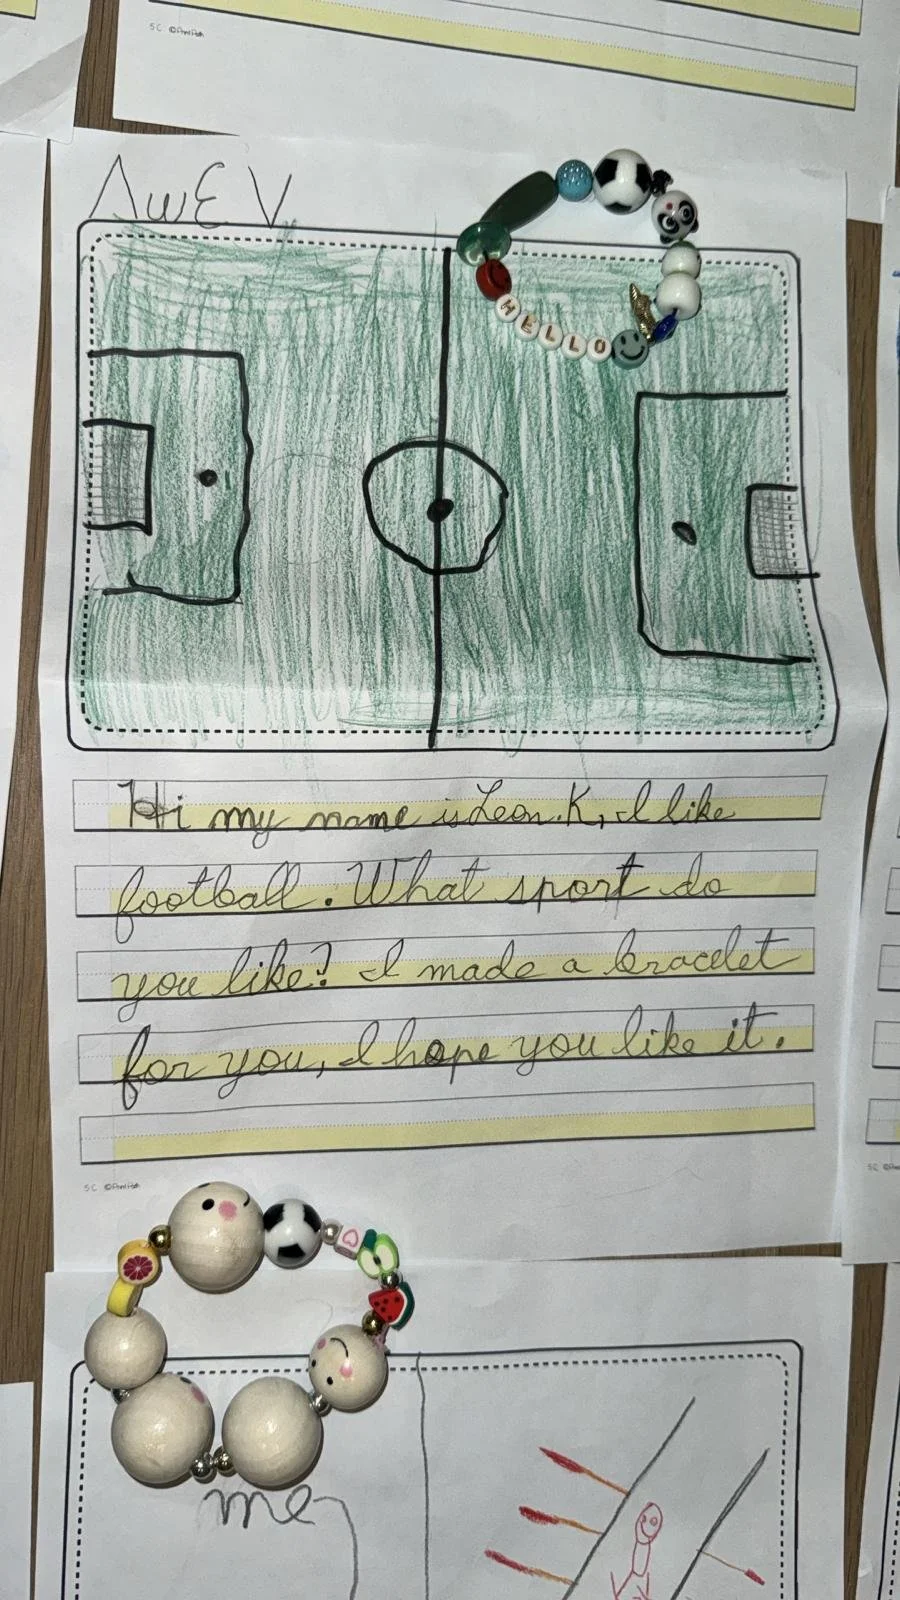 5C
ΛωƐV
HELLO
Hi my name is Leon.K, I like
football. What sport do
you like? I made a bracelet
for you, I hope you like it.
5C
me
5C